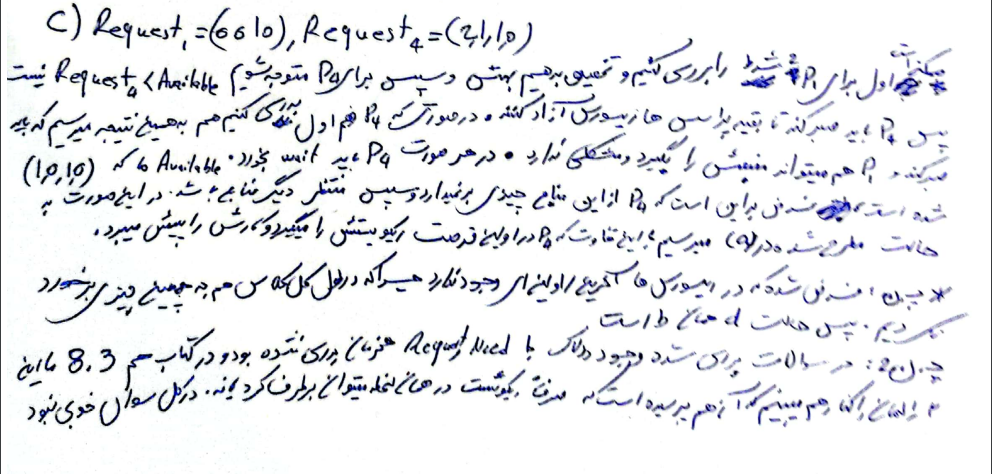 C) Request₁ = (0 0 1 0), Request₄ = (2,1,1,0)
اول برای P₁ را بررسی کنیم و تخصیص بدهیم بهش و سپس برای P₄ متوجه شویم Request₄ < Available نیست
پس P₄ باید صبر کند تا بقیه پراسس ها ریسورس آزاد کنند. در صورتی که P₄ هم اول بررسی کنیم هم به همین نتیجه میرسیم که باید
صبر کند و P₁ هم میتواند را بگیرد و مشکلی ندارد. در هر صورت P₄ باید wait بخورد. Available ما که (1,0,1,0)
شده است، فرض بر این است که P₄ از این منابع چیزی برنمیدارد و سپس منتظر دیگر منابع باشد. در این صورت به
حالت مطرح شده در (a) میرسیم با این تفاوت که P₄ در اولین فرصت ریکوئستش را میگیرد و کارش را پیش میبرد.
فرض شده که در ریسورس ها وجود ندارد چرا که در طول کل کلاس هم به چنین چیزی برخورد
نکردیم. پس حالت d همان b است
در سوالات وجود ددلاک با Need و Request همزمان بررسی نشده بود و در کتاب هم 8.3 ما این
را هم میبینیم که پرسیده است که صرفاً ریکوئست در همان لحظه میتوان برطرف کرد یا نه. در کل سوال خوبی نبود